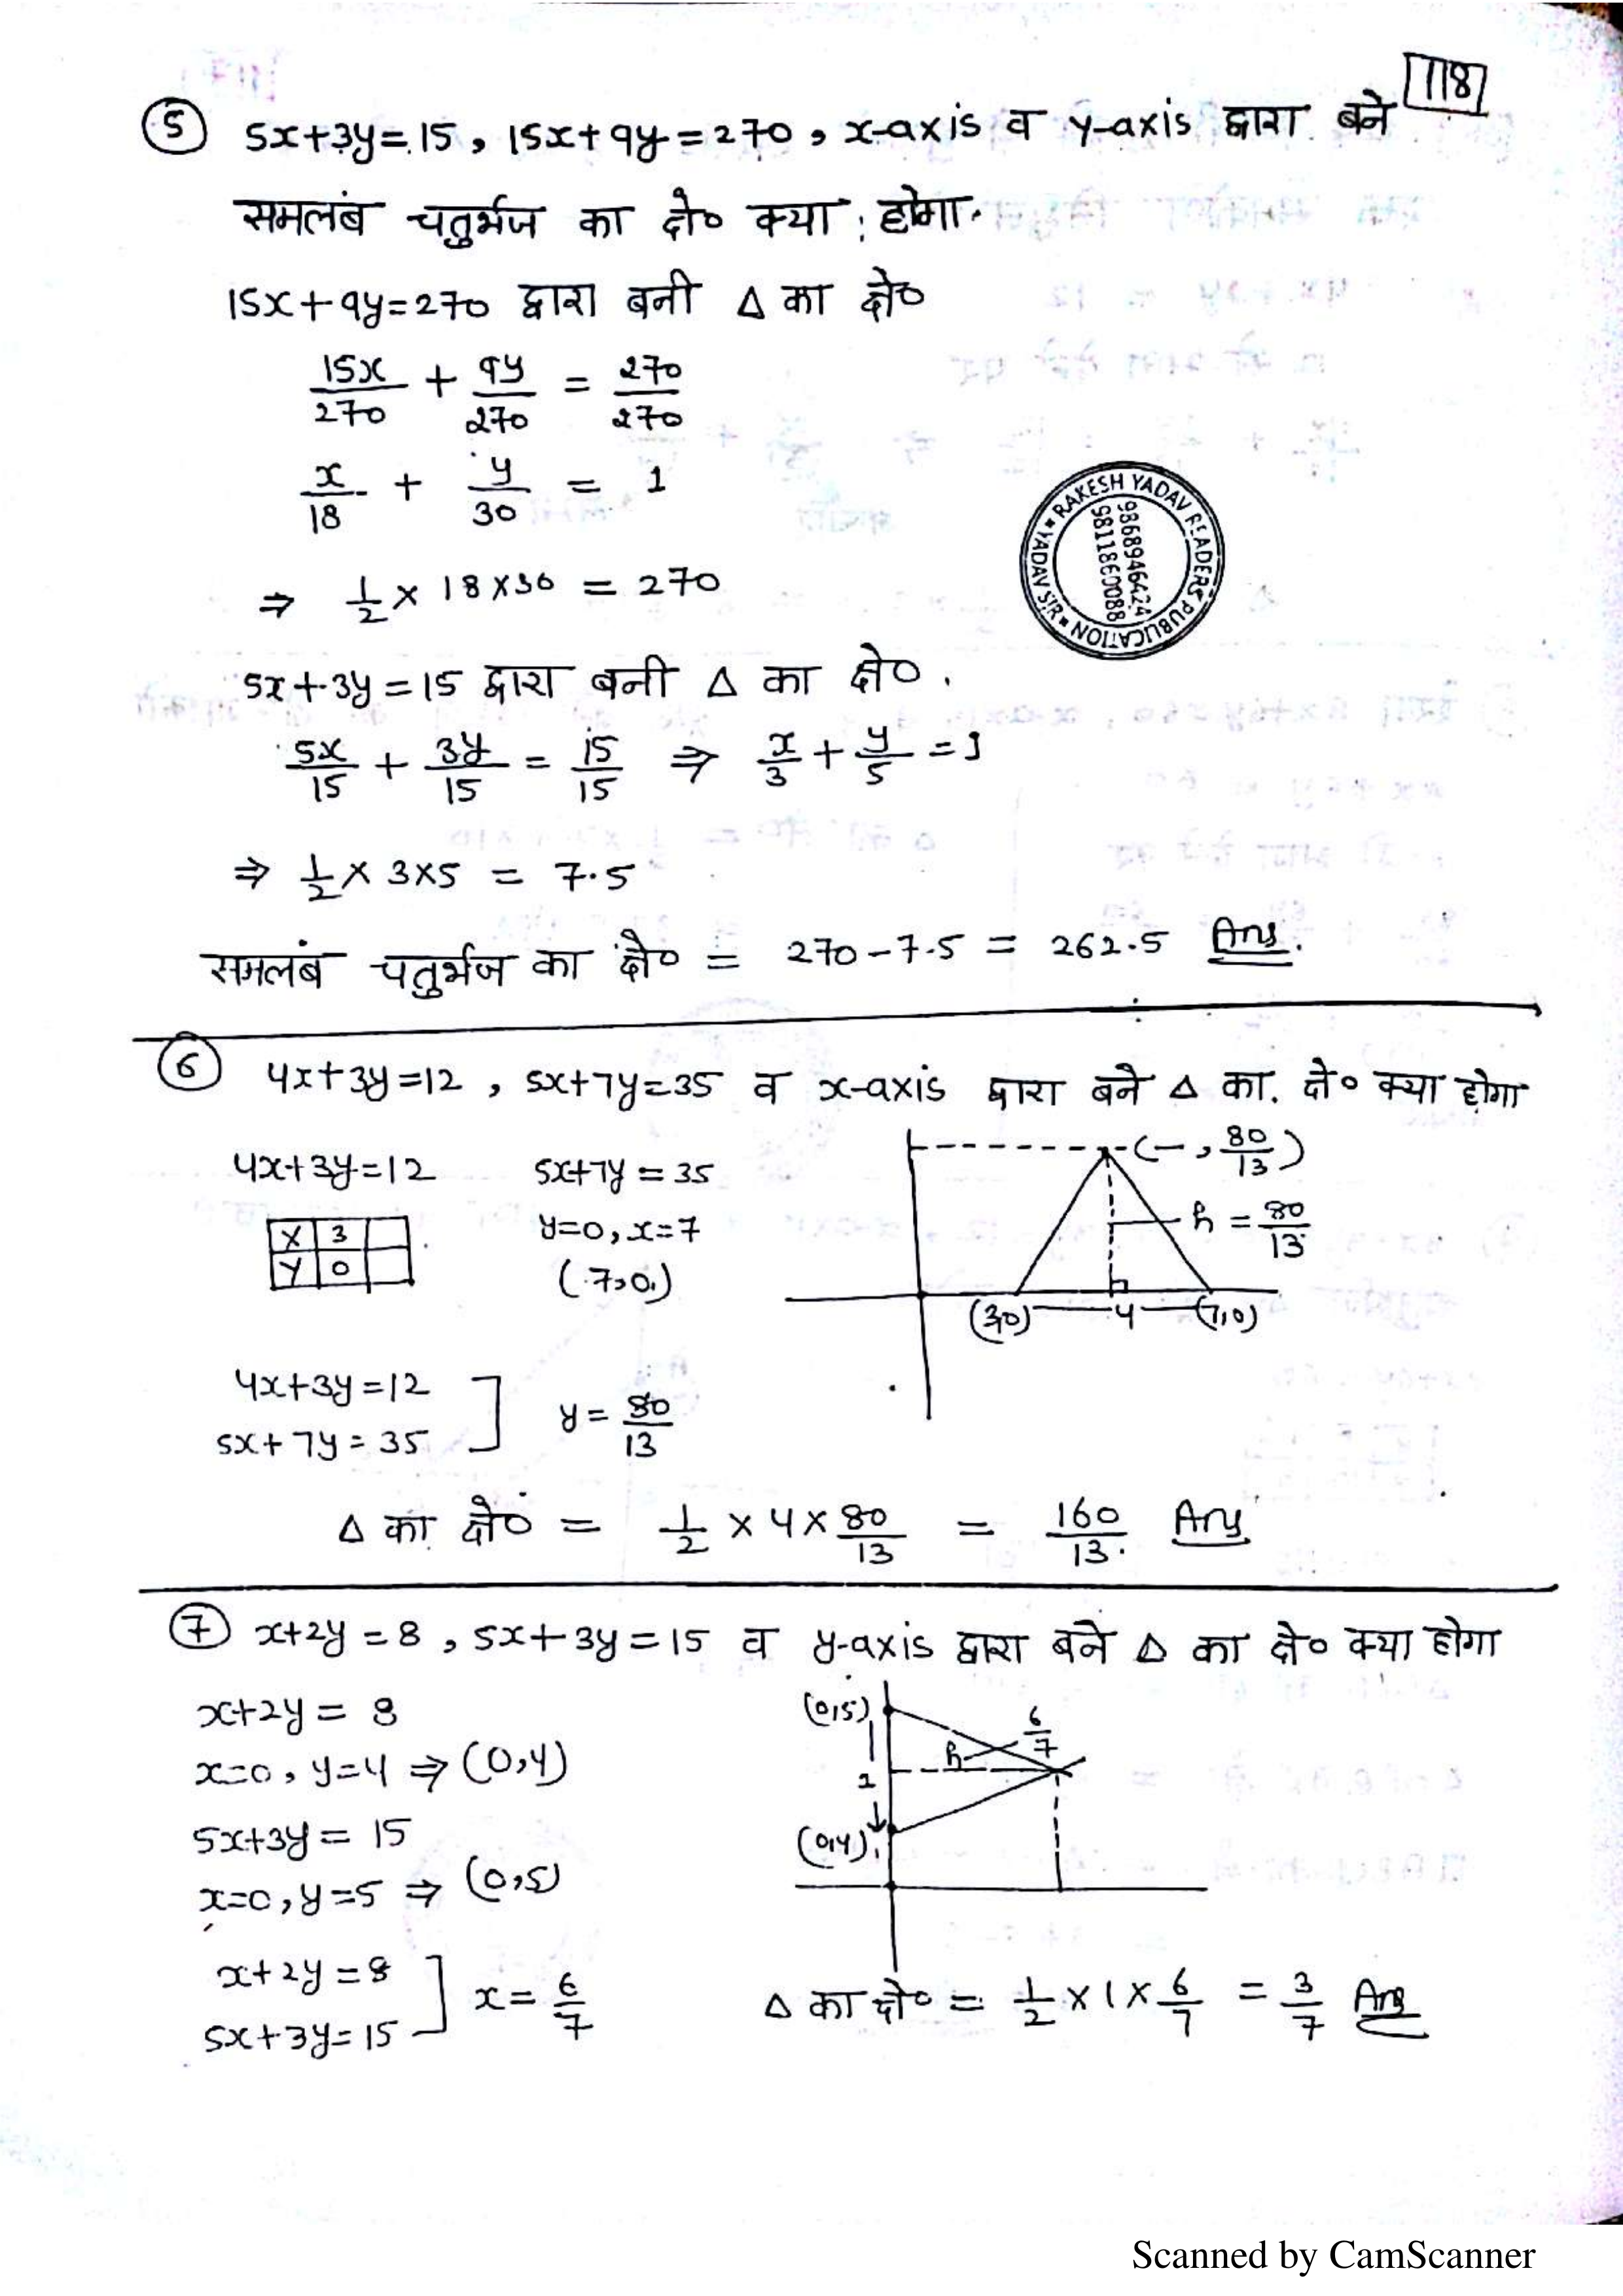 118
⑤ 5x+3y=15, 15x+9y=270, x-axis व y-axis द्वारा बने
समलंब चतुर्भज का क्षे० क्या होगा.
15x+9y=270 द्वारा बनी Δ का क्षे०
15x/270 + 9y/270 = 270/270
x/18 + y/30 = 1
⇒ 1/2 × 18×30 = 270
RAKESH YADAV READERS PUBLICATION
YADAV SIR
9868946424
9811860088
5x+3y=15 द्वारा बनी Δ का क्षे०.
5x/15 + 3y/15 = 15/15 ⇒ x/3 + y/5 = 1
⇒ 1/2 × 3×5 = 7.5
समलंब चतुर्भज का क्षे० = 270-7.5 = 262.5 Ans.
⑥ 4x+3y=12, 5x+7y=35 व x-axis द्वारा बने Δ का. क्षे० क्या होगा
4x+3y=12 5x+7y=35
(—, 80/13)
X 3
Y 0
y=0, x=7
(7,0)
h = 80/13
(3,0) 4 (7,0)
4x+3y=12
5x+7y=35 ] y = 80/13
Δ का क्षे० = 1/2 × 4 × 80/13 = 160/13. Ans
⑦ x+2y=8, 5x+3y=15 व y-axis द्वारा बने Δ का क्षे० क्या होगा
x+2y=8
x=0, y=4 ⇒ (0,4)
5x+3y=15
x=0, y=5 ⇒ (0,5)
(0,5)
h 6/7
1
(0,4)
x+2y=8
5x+3y=15 ] x = 6/7
Δ का क्षे० = 1/2 × 1 × 6/7 = 3/7 Ans
Scanned by CamScanner